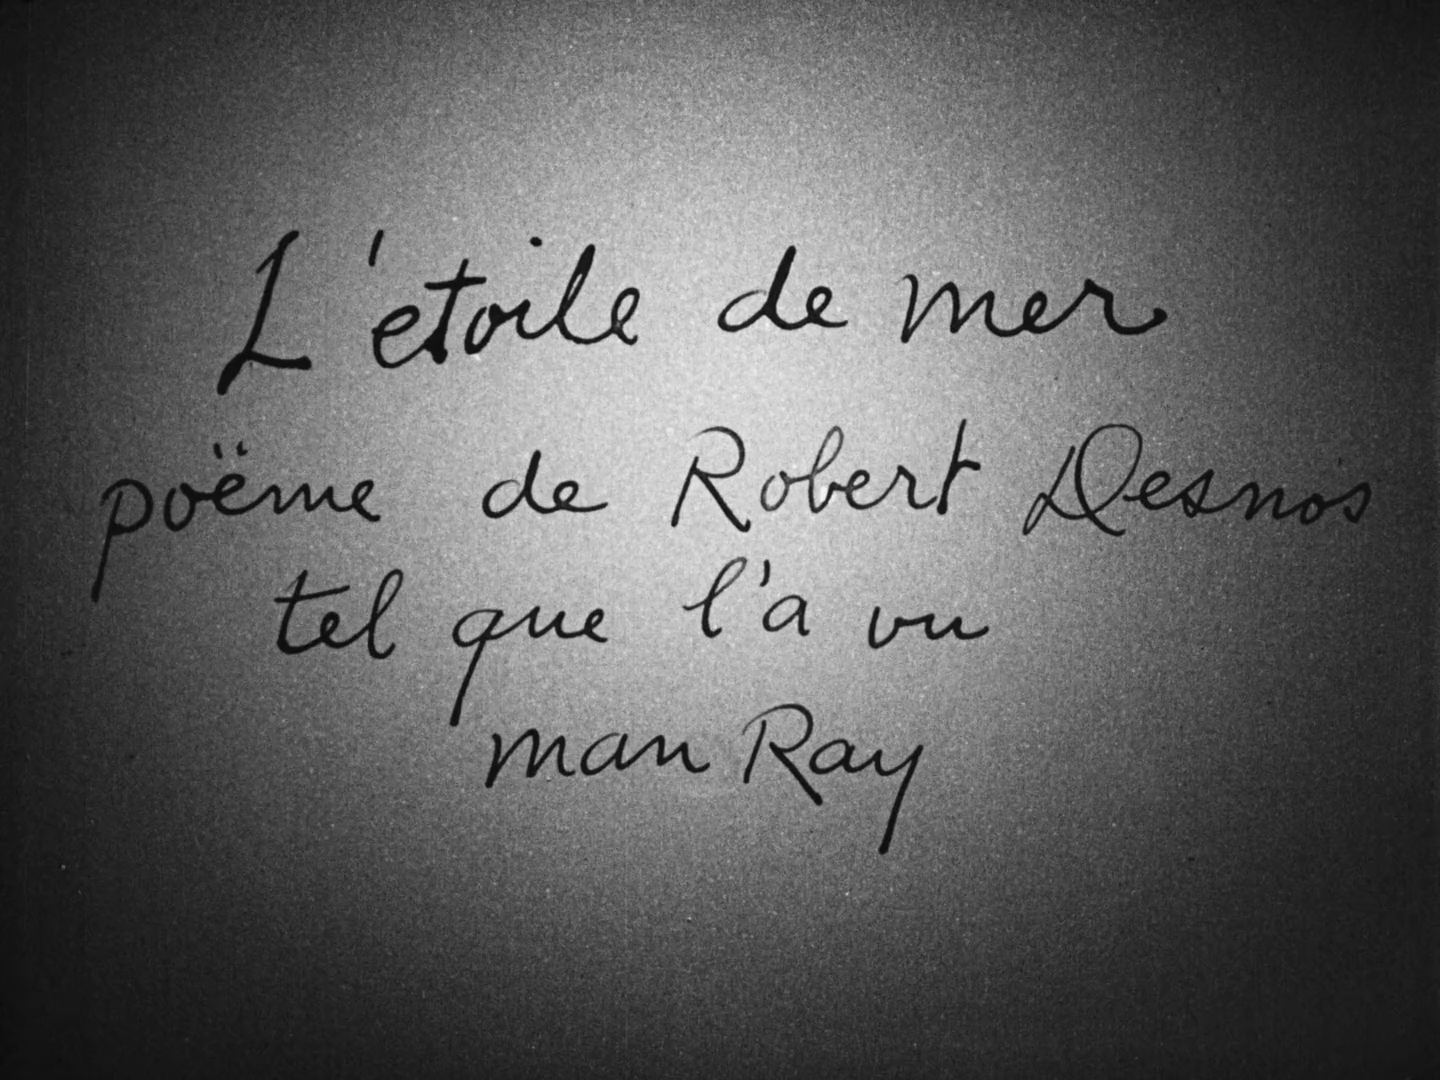 L'etoile de mer
poëme de Robert Desnos
tel que l'a vu
man Ray